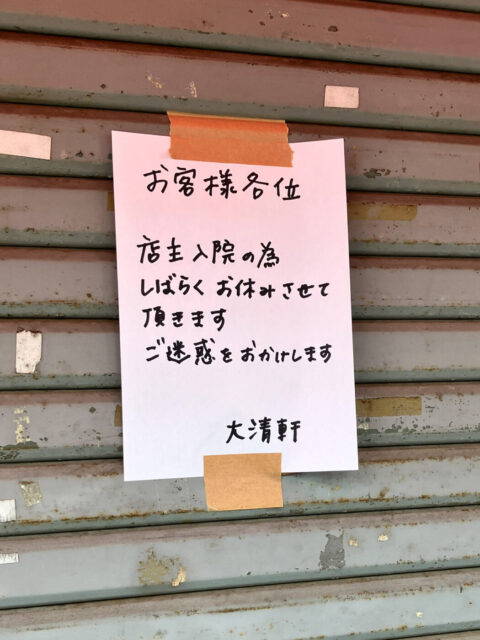 お客様各位
店主入院の為
しばらくお休みさせて
頂きます
ご迷惑をおかけします
大清軒